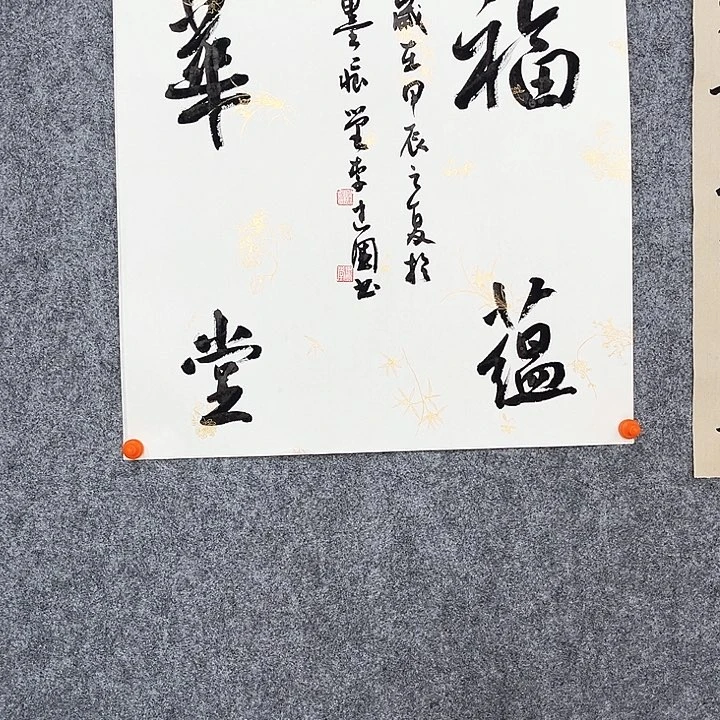 福蘊
歲在甲辰之夏於
墨耕堂李建國書
華堂